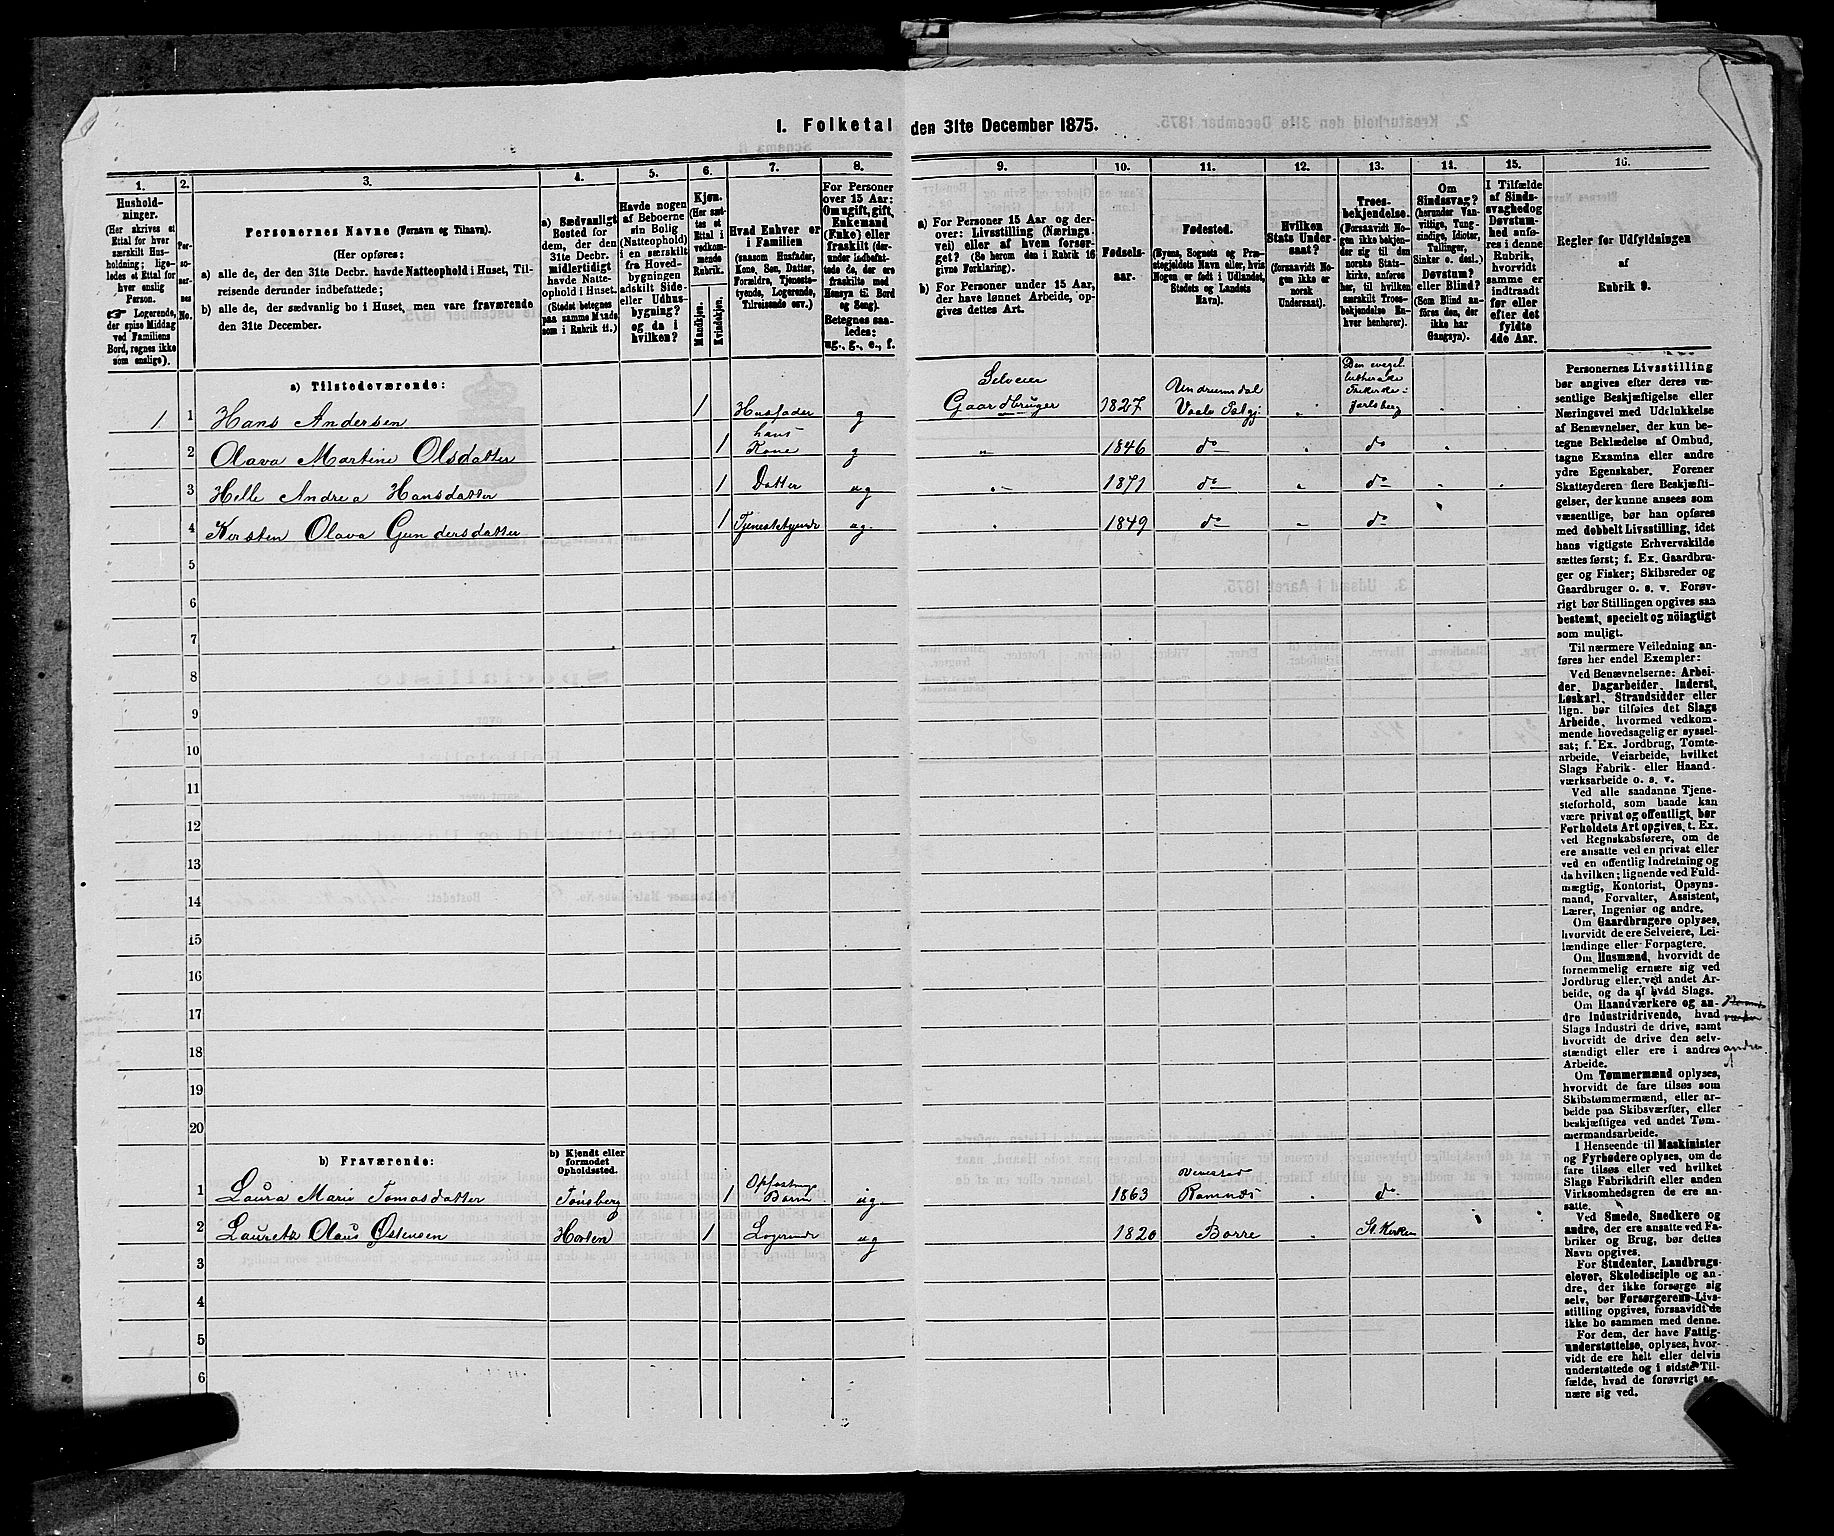 1. Folketal den 31te December 1875.
1.
Hushold-
ninger.
(Her skrives et
Ettal for hver
særskilt Hus-
holdning; lige-
ledes et Ettal for
hver enslig
Person.
Logerende,
der spise Middag
ved Familiens
Bord, regnes ikke
som enslige).
2.
Per-
so-
ner-
nes
No.
3.
Personernes Navne (Fornavn og Tilnavn).
(Her opføres:
a) alle de, der den 31te Decbr. havde Natteophold i Huset, Til-
reisende derunder indbefattede;
b) alle de, der sædvanlig bo i Huset, men vare fraværende
den 31te December.
4.
a) Sædvanligt
Bosted for
dem, der den
31te Decbr.
midlertidigt
havde Natte-
ophold i Huset.
(Stedet betegnes
paa samme Maade
som i Rubrik 11.)
5.
Havde nogen
af Beboerne
sin Bolig
(Natteophold)
i en særskilt
fra Hoved-
bygningen
adskilt Side-
eller Udhus-
bygning?
og da i
hvilken?
6.
Kjøn.
(Her sæt-
tes et
Ettal i
vedkom-
mende
Rubrik.
Mandkjøn.
Kvindekjøn.
7.
Hvad Enhver er
i Familien
(saasom Husfader,
Kone, Søn, Datter,
Forældre, Tjeneste-
tyende, Logerende,
Tilreisende osv.)
8.
For Personer
over 15 Aar:
Om ugift, gift,
Enkemand
(Enke) eller
fraskilt (der-
under indbefat-
tede de, der ere
fraskilte med
Hensyn til Bord
og Seng).
Betegnes saa-
ledes:
ug., g., e., f.
9.
a) For Personer 15 Aar og der-
over: Livsstilling (Nærings-
vei) eller af hvem forsør-
get? (Se herom den i Rubrik 16
givne Forklaring).
b) For Personer under 15 Aar,
der have lønnet Arbeide, op-
gives dettes Art.
10.
Fødsels-
aar.
11.
Fødested.
(Byens, Sognets og Præ-
stegjeldets Navn eller, hvis
Nogen er født i Udlandet,
Stedets og Landets
Navn).
12.
Hvilken
Stats Under-
saat?
(forsaavidt No-
gen ikke er
norsk
Undersaat).
13.
Troes-
bekjendelse.
(Forsaavidt No-
gen ikke bekjen-
der sig til den
norske Stats-
kirke, anføres
her, til hvilken
særskilt Troes-
bekjendelse En-
hver henhører).
14.
Om
Sindssvag?
(herunder Van-
vittige, Tung-
sindige, Idioter,
Tullinger,
Sinker o. desl.)
Døvstum?
eller Blind?
(Som Blind an-
føres den, der
ikke har
Gangsyn).
15.
I Tilfælde
af Sinds-
svaghed og
Døvstum-
hed anfø-
res i denne
Rubrik,
hvorvidt
samme er
indtraadt
før eller
efter det
fyldte
4de Aar.
16.
Regler for Udfyldningen
af
Rubrik 9.
a) Tilstedeværende:
1 1 Hans Andersen 1 Husfader g Selveier Gaardbruger 1827 Undrumsdal Vaale Pstgj Den evagel. lutherske Frikirke i Jarlsberg
2 Olava Martine Olsdatter 1 hans Kone g 1846 do do
3 Helle Andrea Hansdatter 1 Datter ug 1871 do do
4 Kirsten Olava Gundersdatter 1 Tjenestetyende ug. 1849 do do
5
6
7
8
9
10
11
12
13
14
15
16
17
18
19
20
b) Fraværende:
b) Kjendt eller
formodet
Opholdssted.
1 Laura Marie Tomasdatter Tønsberg 1 Opfostrings Barn ug. 1863 Ramnæs d
2 Lauretz Olaus Østensen Horten 1 Logerende ug 1820 Borre St. Kirken
3
4
5
6
Personernes Livsstilling
bør angives efter deres væ-
sentlige Beskjæftigelse eller
Næringsvei med Udelukkelse
af Benævnelser, der kun be-
tegne Beklædelse af Ombud,
tagne Examina eller andre
ydre Egenskaber. Forener
Skatteyderen flere Beskjæfti-
gelser, der kunne ansees som
væsentlige, bør han opføres
med dobbelt Livsstilling, idet
hans vigtigste Erhvervskilde
sættes først; f. Ex. Gaardbru-
ger og Fisker; Skibsreder og
Gaardbruger o. s. v. Forøv-
rigt bør Stillingen opgives saa
bestemt, specielt og nöiagtigt
som muligt.
Til nærmere Veiledning an-
føres her endel Exempler:
Ved Benævnelserne: Arbei-
der, Dagarbeider, Inderst,
Løskarl, Strandsidder eller
lign. bør tilføies det Slags
Arbeide, hvormed vedkom-
mende hovedsagelig er syssel-
sat; f. Ex. Jordbrug, Tomte-
arbeide, Veiarbeide, hvilket
Slags Fabrik- eller Haand-
værksarbeide o. s. v.
Ved alle saadanne Tjene-
steforhold, som baade kan
være privat og offentligt, bør
Forholdets Art opgives, t. Ex.
ved Regnskabsførere, om de
ere ansatte ved en privat eller
ved en offentlig Indretning og
da hvilken; lignende ved Fuld-
mægtig, Kontorist, Opsyns-
mand, Forvalter, Assistent,
Lærer, Ingeniør og andre.
Om Gaardbrugere oplyses,
hvorvidt de ere Selveiere, Lei-
lændinge eller Forpagtere.
Om Husmænd, hvorvidt de
fornemmelig ernære sig ved
Jordbrug eller ved andet Ar-
beide, og da af hvad Slags.
Om Haandværkere og an-
dre Industridrivende, hvad
Slags Industri de drive, samt
hvorvidt de drive den selv-
stændigt eller ere i andres
Arbeide.
Om Tømmermænd oplyses,
hvorvidt de fare tilsøs som
Skibstømmermænd, eller ar-
beide paa Skibsværfter, eller
beskjæftiges ved andet Tøm-
mermandsarbeide.
I Henseende til Maskinister
og Fyrbødere oplyses, om de
fare tilsøs eller ved hvilket
Slags Fabrikdrift eller anden
Virksomhedsgren de ere an-
satte.
Ved Smede, Snedkere og
andre, der ere ansatte ved Fa-
briker og Brug, bør dettes
Navn opgives.
For Studenter, Landbrugs-
elever, Skoledisciple og an-
dre, der ikke forsørge sig
selv, bør Forsørgerens Livs-
stilling opgives, forsaavidt de
ikke bo sammen med denne.
For dem, der have Fattig-
understøttelse, oplyses, hvor-
vidt de ere helt eller delvis
understøttede og i sidste Til-
fælde, hvad de forøvrigt er-
nære sig ved.